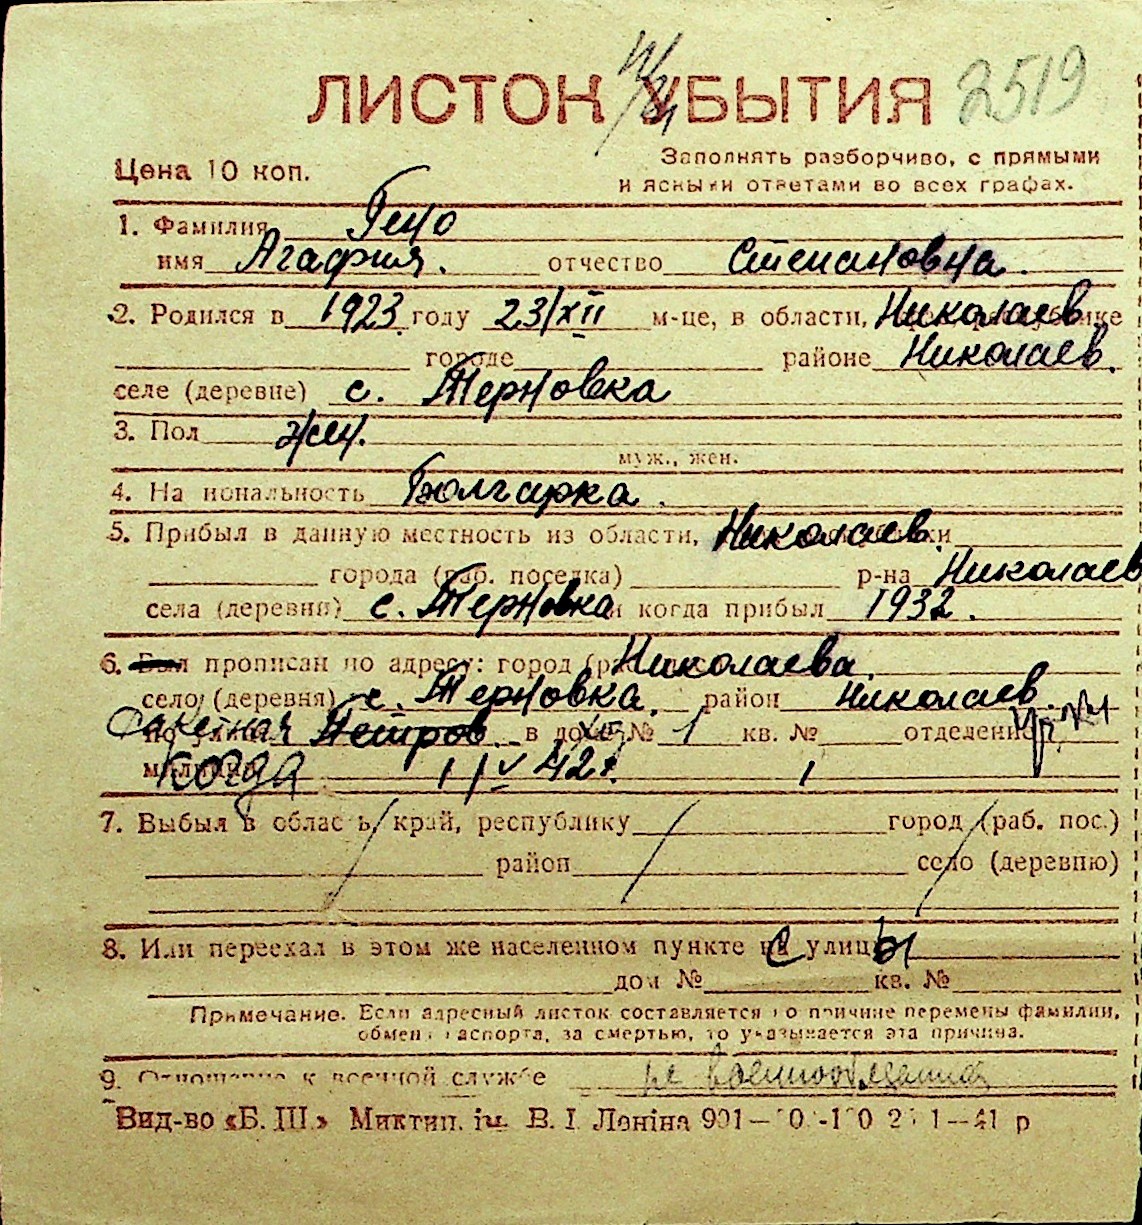 ЛИСТОК УБЫТИЯ 2519
Цена 10 коп. Заполнять разборчиво, с прямыми
и ясными ответами во всех графах.
1. Фамилия Гено
имя Агафия. отчество Степановна.
2. Родился в 1923 году 23/XII м-це, в области, Николаев.
городе районе Николаев.
селе (деревне) с. Терновка
3. Пол жен.
муж., жен.
4. Национальность Болгарка.
5. Прибыл в данную местность из области, Николаев.
города (раб. поселка) р-на Николаев
села (деревни) с. Терновка и когда прибыл 1932.
6. Был прописан по адресу: город Николаева.
село (деревня) с. Терновка. район Николаев.
Петров. в № 1 кв. № отделение
когда 1/V 42 г. 1
7. Выбыл в область, край, республику город (раб. пос.)
район село (деревню)
8. Или переехал в этом же населенном пункте с улицы
дом № кв. №
Примечание. Если адресный листок составляется по причине перемены фамилии,
обмена паспорта, за смертью, то указывается эта причина.
9. Отношение к военной службе не военнообязанная
Вид-во «Б. Ш.» Миктип. ім. В. І. Леніна